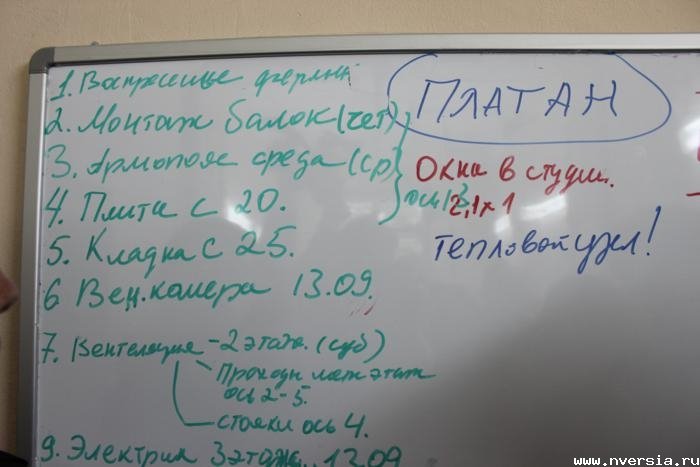 1. Воскресенье
ПЛАТАН
2. Монтаж балок (чет)
3. Армопояс среда (ср)
Окна в студии.
2,1 x 1
4. Плита с 20.
ось 13
5. Кладка с 25.
Тепловой узел!
6 Вен. камера 13.09.
7. Вентеляция - 2 этажа. (суб)
Проходы
этаж
ось 2-5.
стояки ось 4.
9. Электрик 3 этажа.. 13.09
www.nversia.ru